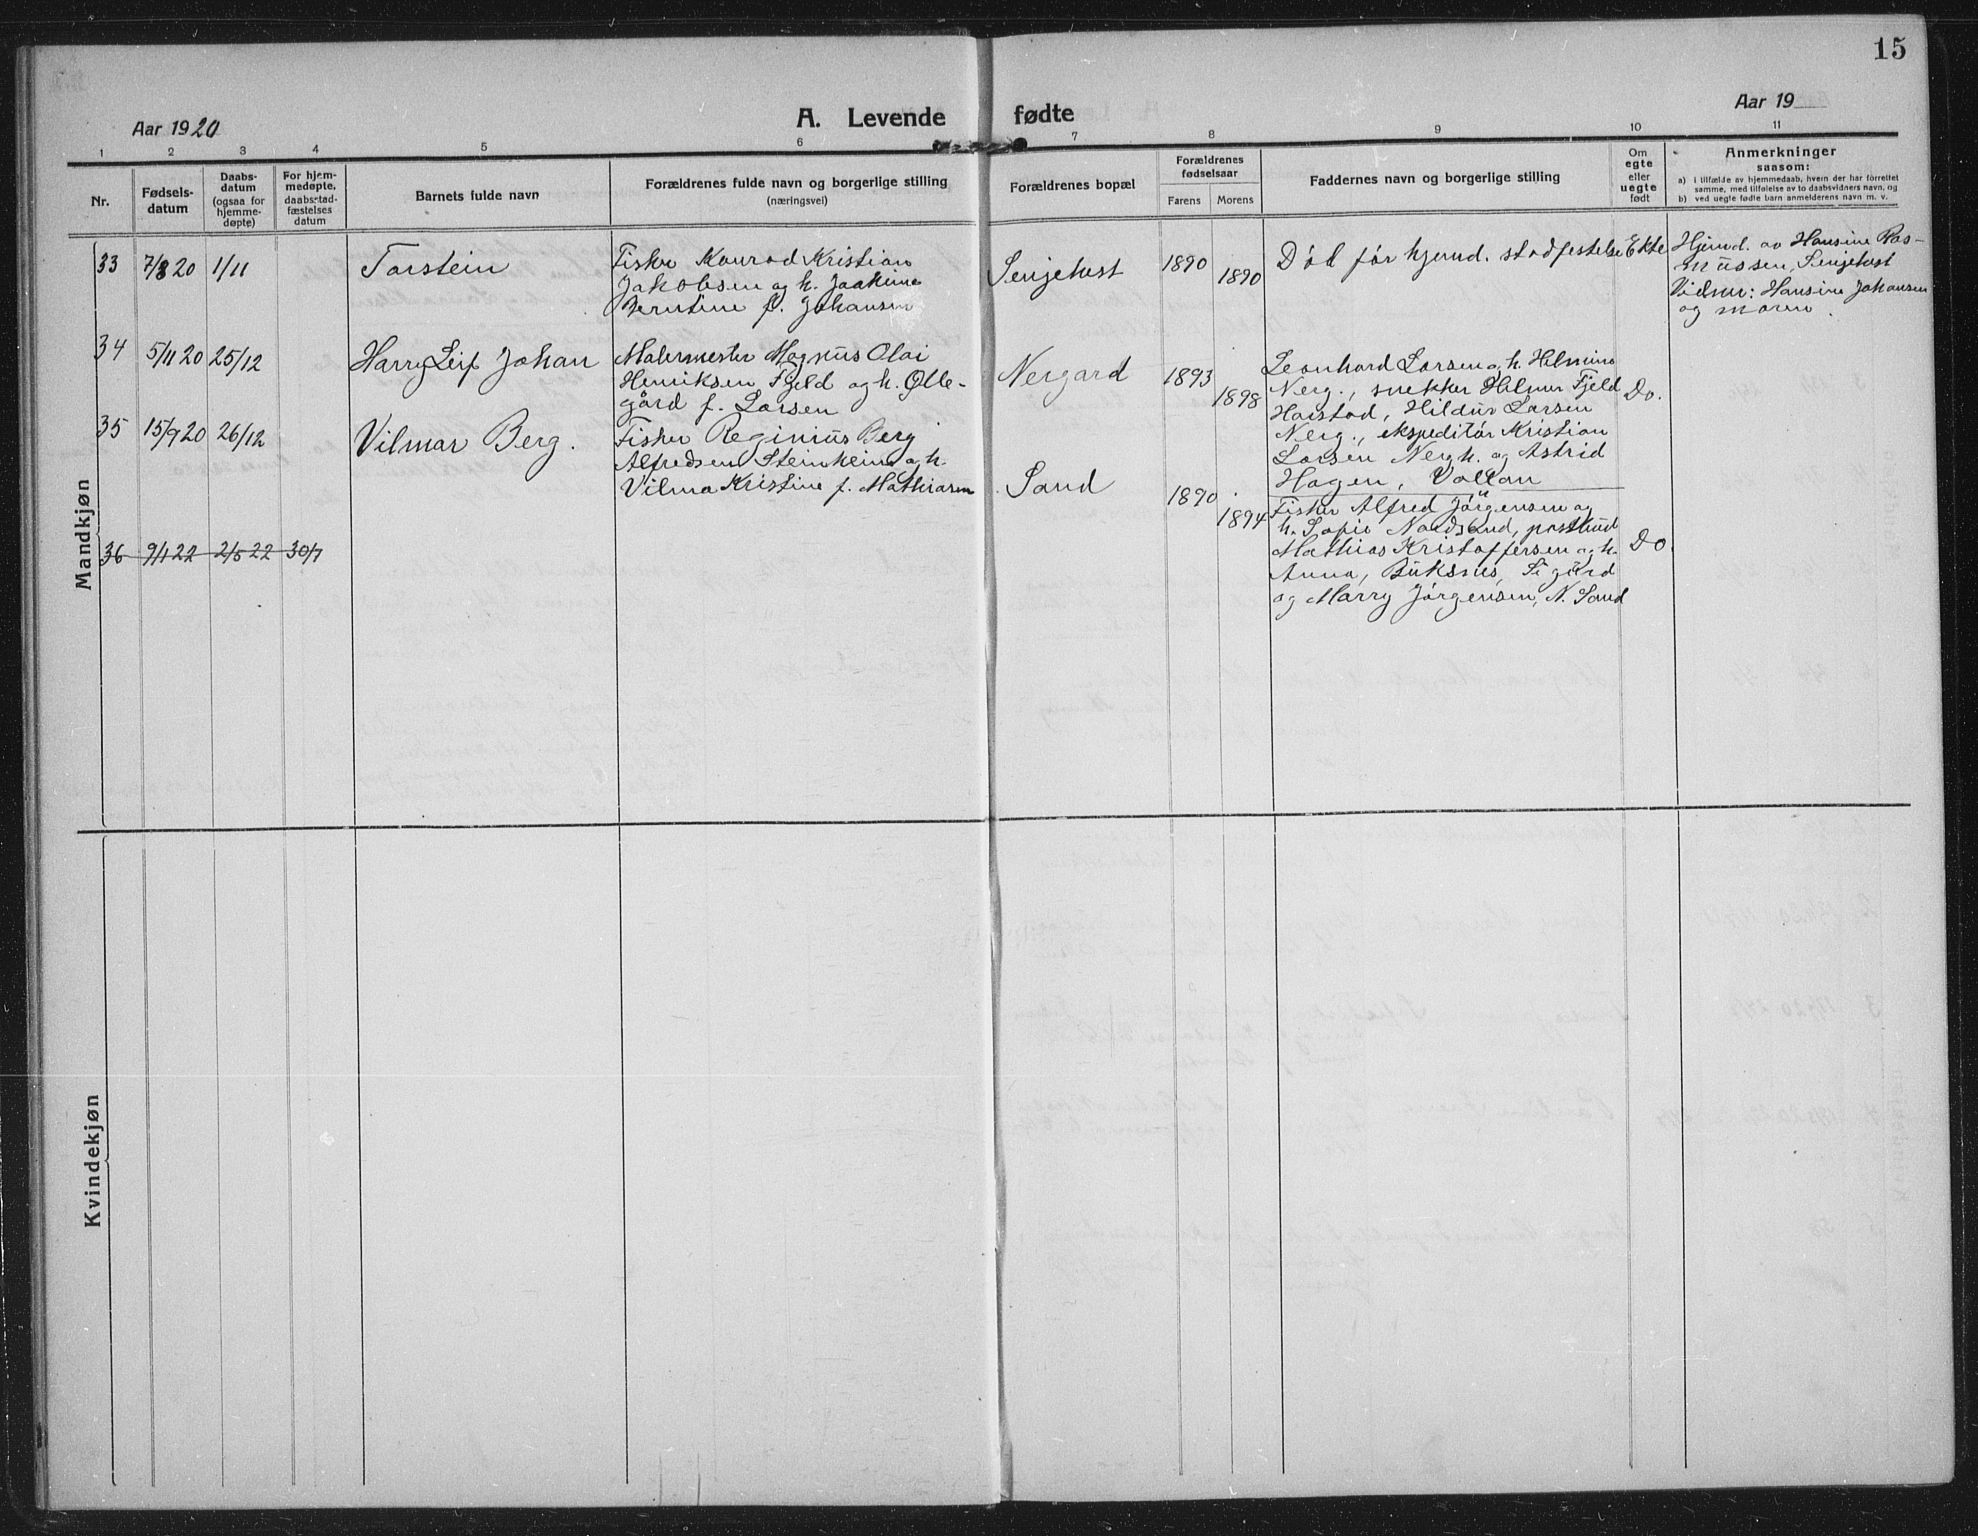 15
Aar 1920
A. Levende fødte
Aar 19
1 2 3 4 5 6 7 8 9 10 11
Nr.
Fødsels-
datum
Daabs-
datum
(ogsaa for
hjemme-
døpte)
For hjem-
medøpte,
daabsstad-
fæstelses
datum
Barnets fulde navn
Forældrenes fulde navn og borgerlige stilling
(næringsvei)
Forældrenes bopæl
Forældrenes
fødselsaar
Farens Morens
Faddernes navn og borgerlige stilling
Om
egte
eller
uegte
født
Anmerkninger
saasom:
a) i tilfælde av hjemmedaab, hvem der har forrettet
samme, med tilføielse av to daabsvidners navn, og
b) ved uegte fødte barn anmelderens navn m. v.
Mandkjøn
33 7/8 20 1/11
Torstein
Fisker Konrad Kristian
Jakobsen og h. Joakime
Berntine f. Johansen
Senjehest
1890 1890
Död før hjemd. stadfestelse
Ekte
Hjemd. av Hansine Ras-
mussen, Senjehest
Vidner: Hansine Johansen
og moren.
34 5/11 20 25/12
Harry Leif Johan
Malermester Magnus Olai
Henriksen Fjeld og h. Olle-
gård f. Larsen
Nergård
1893 1898
Leonhard Larsen og h. Helmine
Nerg., snekker Hilmer Fjeld
Harstad, Hildur Larsen
Nerg., ekspeditör Kristian
Larsen Nergh. og Astrid
Hagen, Vollan
Do.
35 15/9 20 26/12
Vilmar Berg.
Fisker Reginius Berg
Alfredsen Steinheim og h.
Vilma Kristine f. Mathiasen
Sand
1890 1894
Fisker Alfred Jörgensen og
h. Sofie Nordsand, postbud
Mathias Kristoffersen og h.
Anna, Buksnes, Sigurd
og Marry Jörgensen, N. Sand
Do.
36 9/1 22 2/5 22 30/7
Kvindekjøn